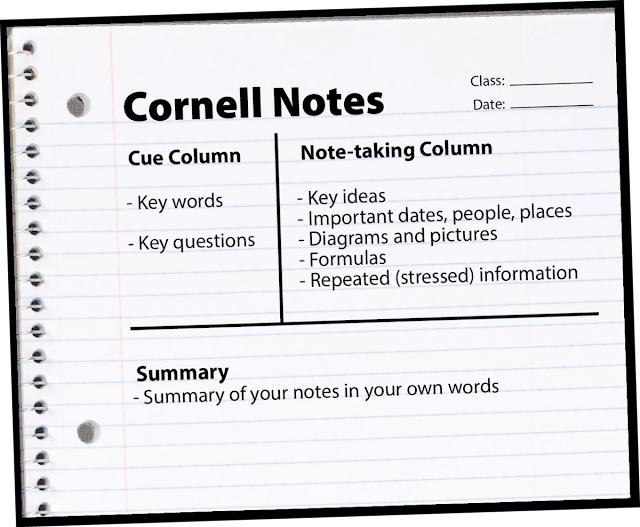 Class: ___________
Date: ___________
Cornell Notes
Cue Column
- Key words
- Key questions
Note-taking Column
- Key ideas
- Important dates, people, places
- Diagrams and pictures
- Formulas
- Repeated (stressed) information
Summary
- Summary of your notes in your own words